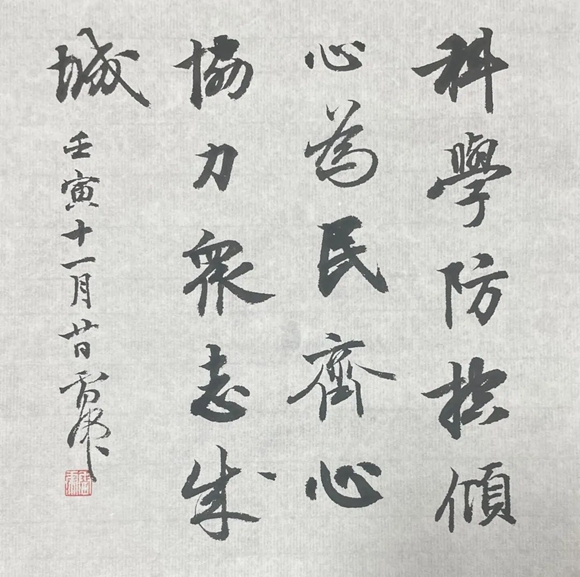 科學防控傾
心為民齊心
協力眾志成
城
壬寅十一月廿日